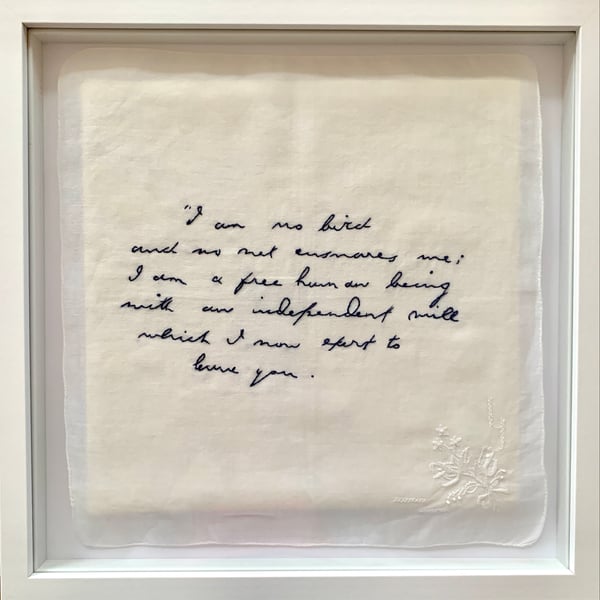 "I am no bird
and no net ensnares me;
I am a free human being
with an independent will
which I now exert to
leave you.